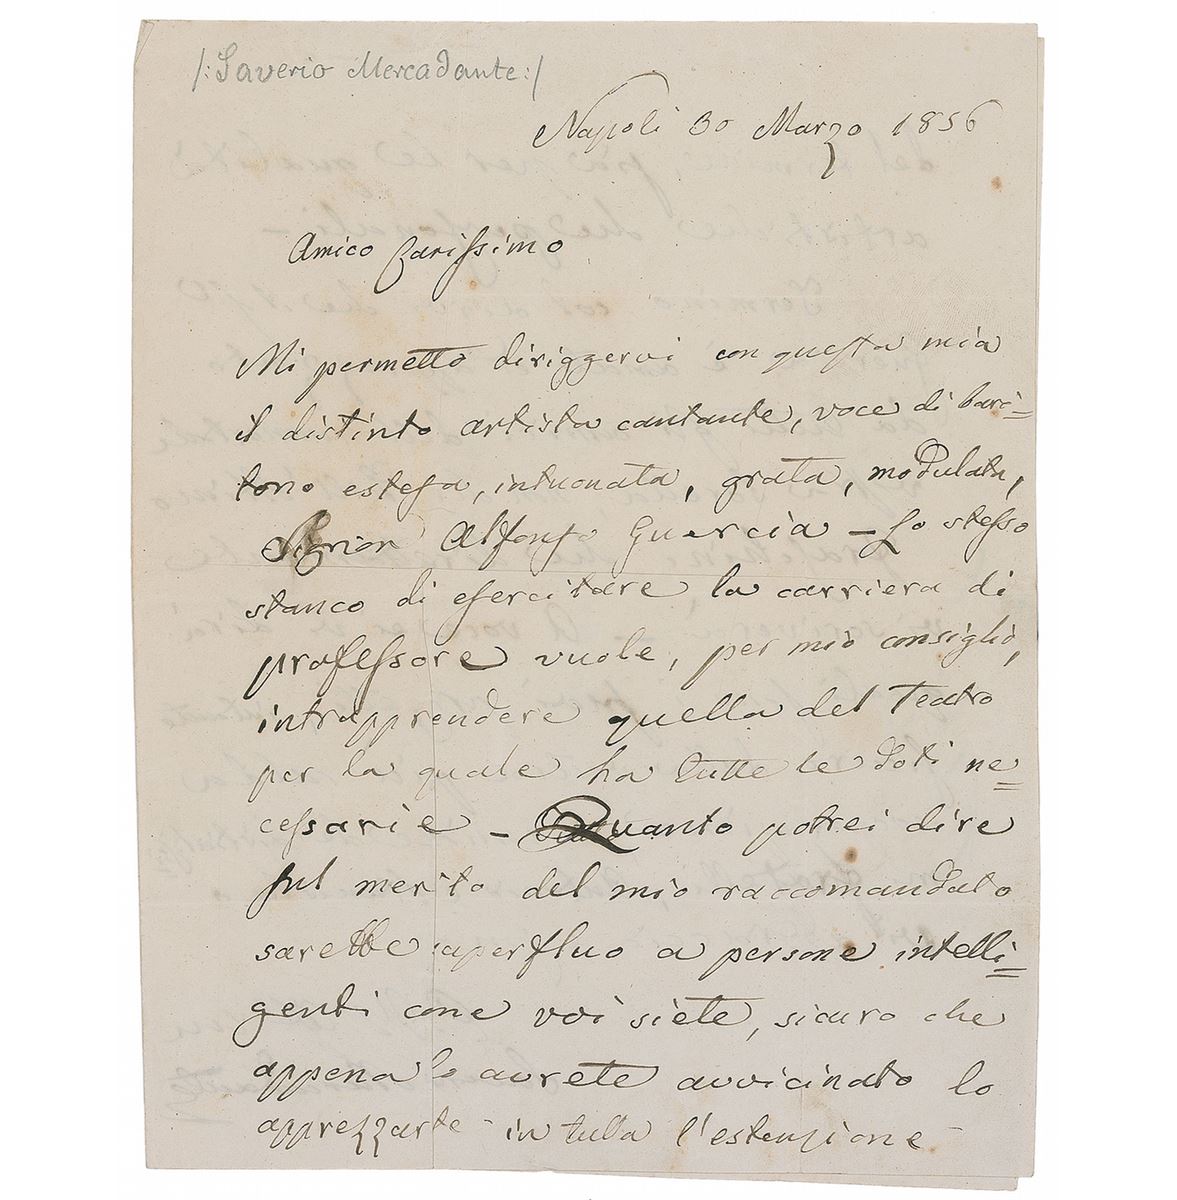 /: Saverio Mercadante :/
Napoli 30 Marzo 1856
Amico Carissimo
Mi permetto diriggervi con questa mia
il distinto artista cantante, voce di bari=
tono estesa, intuonata, grata, modulata,
Signor Alfonso Guercia – Lo stesso
stanco di esercitare la carriera di
professore vuole, per mio consiglio,
intrapprendere quella del Teatro
per la quale ha tutte le doti ne=
cessarie – Quanto potrei dire
sul merito del mio raccomandato
sarebbe superfluo a persone intelli=
genti come voi siete, sicuro che
appena lo avrete avvicinato lo
apprezzarte in tutta l'estenzione